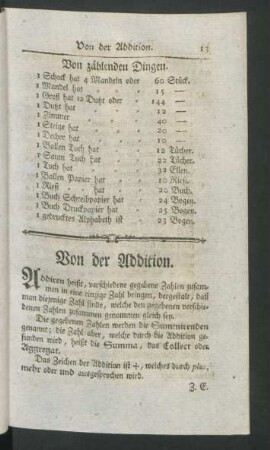 Von der Addition. 13
Von zählenden Dingen.
1 Schock hat 4 Mandeln oder 60 Stück.
1 Mandel hat " " 15 —
1 Groß hat 12 Dutzt oder 144 —
1 Dutzt hat " " 12 —
1 Zimmer " " 40 —
1 Steige hat " " 20 —
1 Decher hat " " 10 —
1 Ballen Tuch hat " 12 Tücher.
1 Saum Tuch hat " 22 Tücher.
1 Tuch hat " " 32 Ellen.
1 Ballen Papier hat " 10 Rieß.
1 Rieß " hat " 20 Buch.
1 Buch Schreibpapier hat " 24 Bogen.
1 Buch Druckpapier hat " 25 Bogen.
1 gedrucktes Alphabeth ist 23 Bogen.
Von der Addition.
Addiren heißt, verschiedene gegebene Zahlen zusam-
men in eine einzige Zahl bringen, dergestalt, daß
man diejenige Zahl finde, welche den gegebenen verschie-
denen Zahlen zusammen genommen gleich sey.
Die gegebenen Zahlen werden die Summirenden
genannt; die Zahl aber, welche durch die Addition ge-
funden wird, heißt die Summa, das Collect oder
Aggregat.
Das Zeichen der Addition ist +, welches durch plus,
mehr oder und ausgesprochen wird.
Z. E.